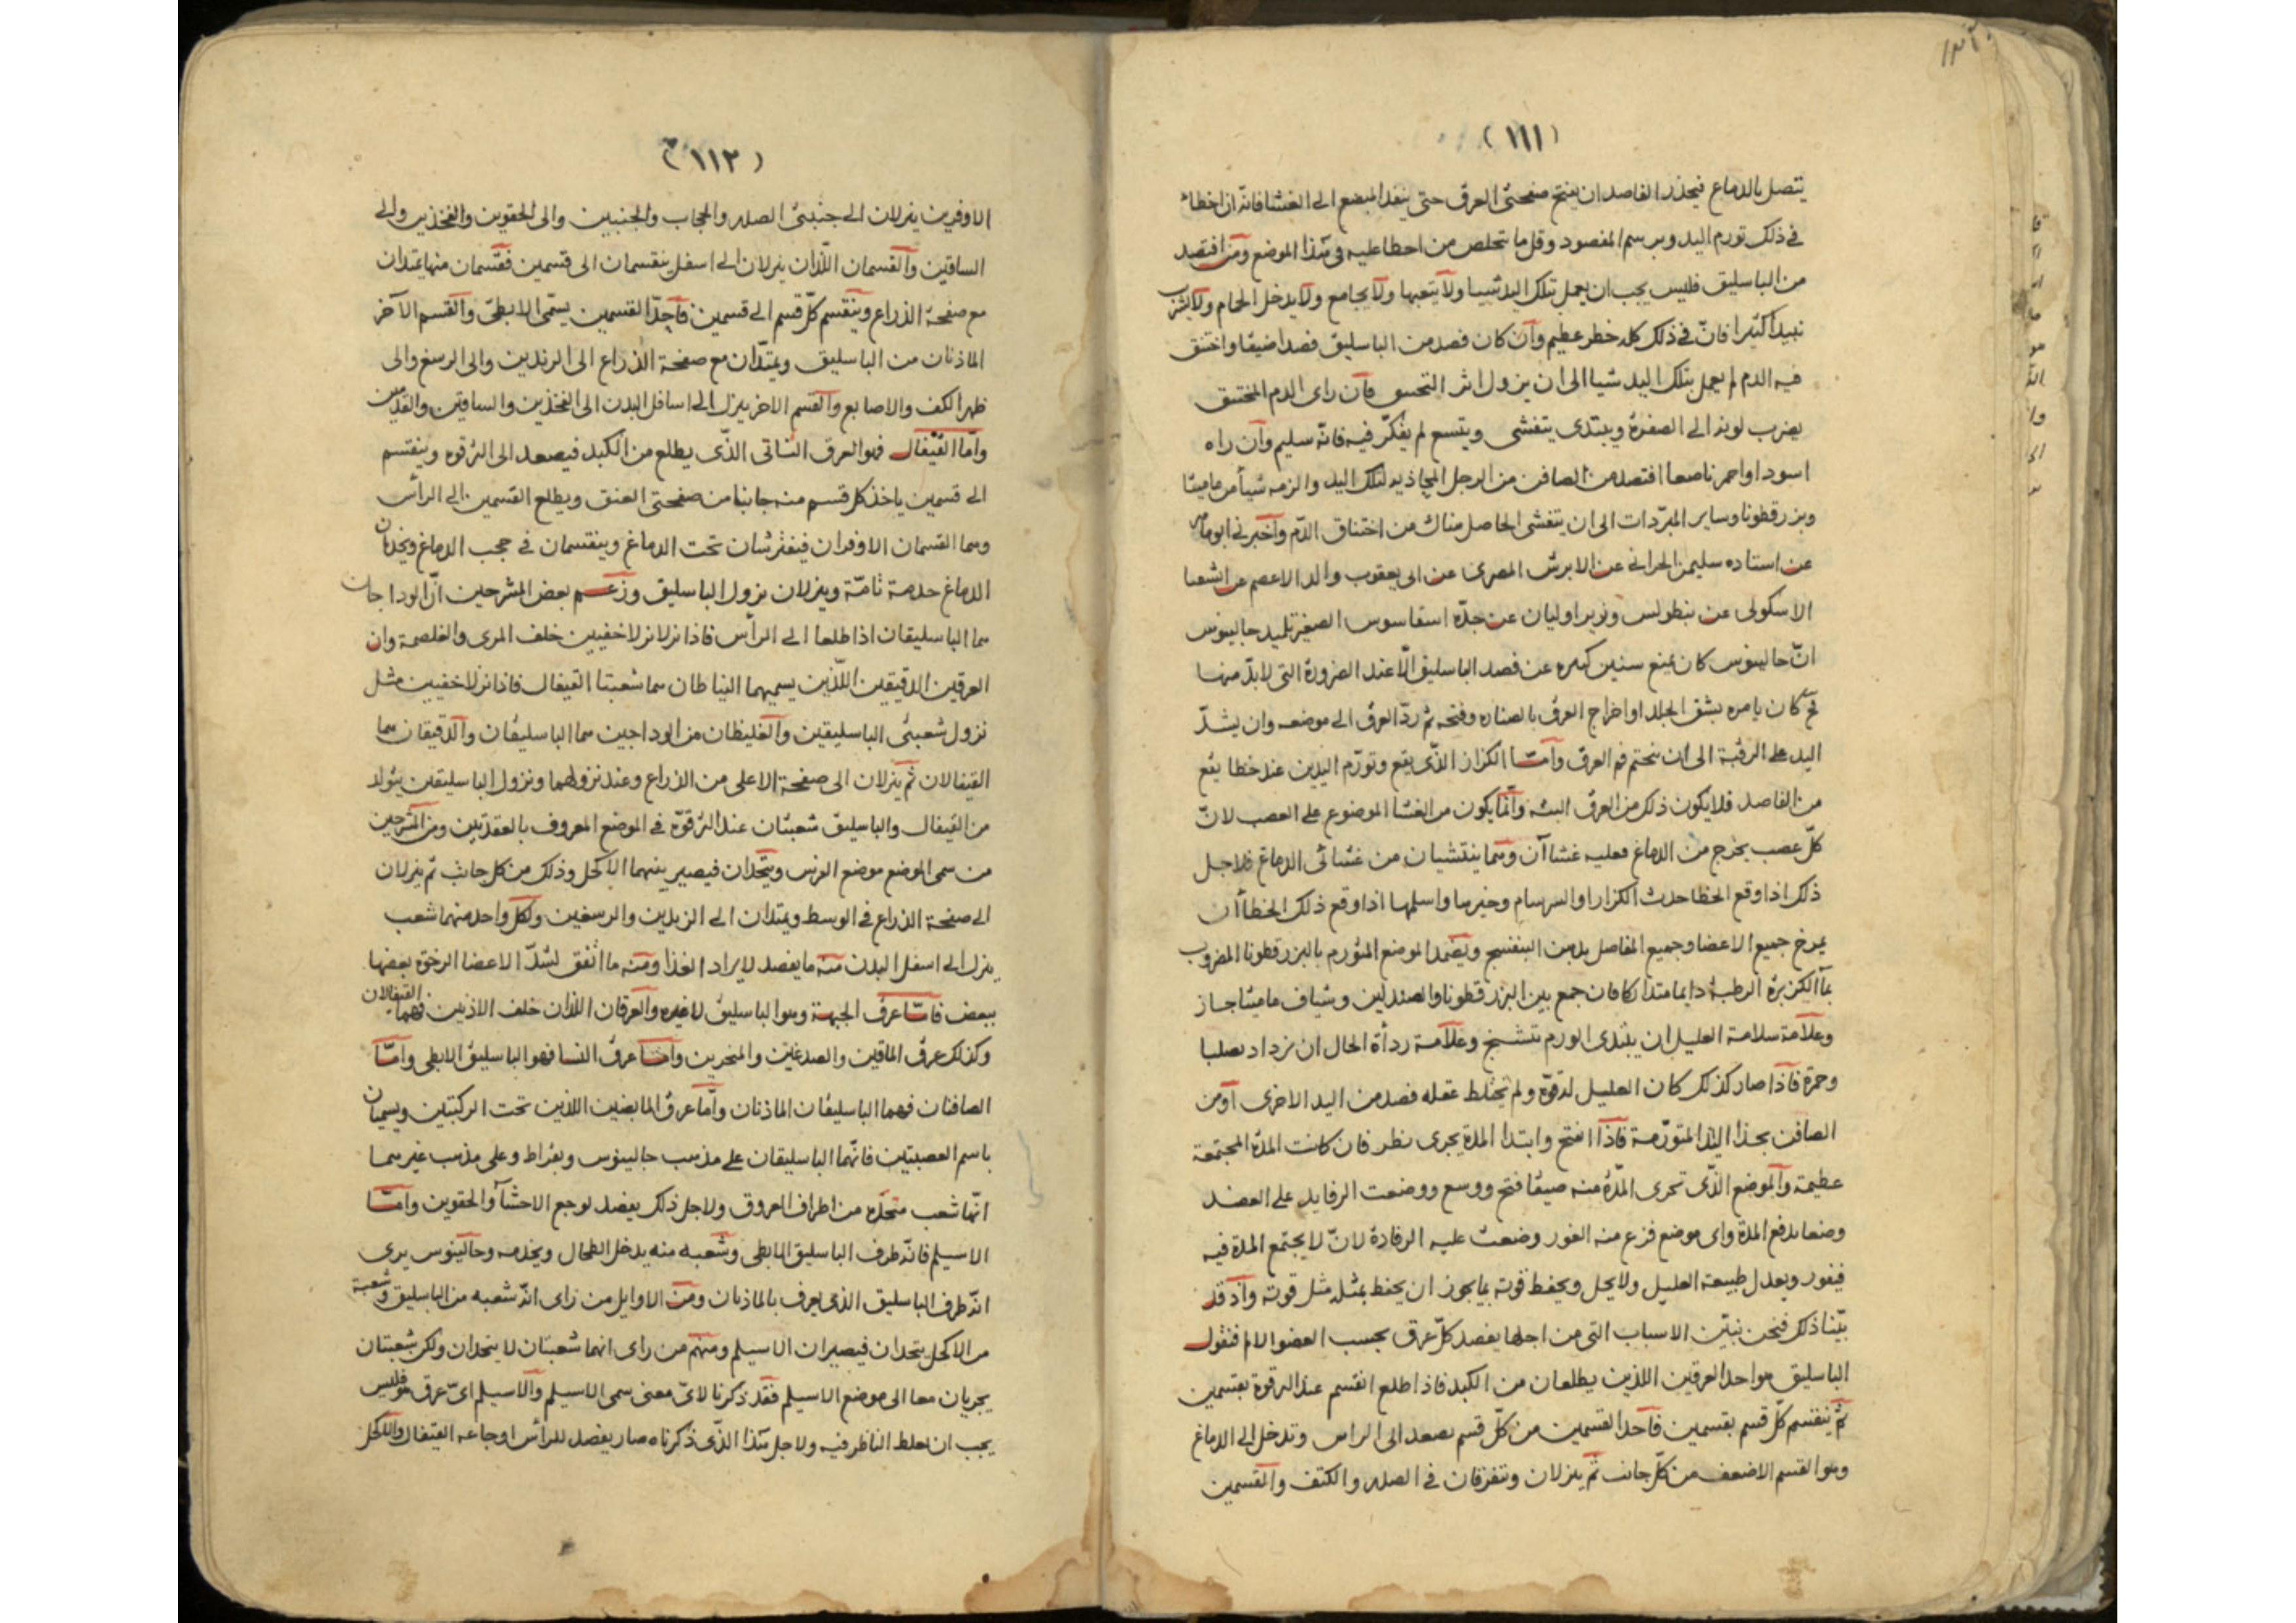 (١١١)
يتصل بالدماغ فيحذر الفاصد ان يفتح صفحتى العرق حتى ينفذ المبضع الى الغشا فانّه ان اخطاء
فى ذلك تورم اليد وبرسم المفصود وقل ما يتخلص من اخطا عليه فى هذا الموضع ومن افتصد
من الباسليق فليس يجب ان يعمل بتلك اليد شيئا ولا يتعبها ولا يجامع ولا يدخل الحمام ولا يشرب
نبيذا كثيرا فانّ فى ذلك كله خطر عظيم وان كان فصد من الباسليق فصدا ضيقا واختنق
فيه الدم لم يعمل بتلك اليد شيا الى ان يزول اثر فان راى الدم المختنق
يضرب لونه الى الصفرة ويبتدى يتفشى ويتسع لم يفكّر فيه فانّه سليم وان راه
اسود او احمر ناصعا افتصد من الصافن من الرجل المحاذيه لتلك اليد والزمه شيأ من ماميثا
وبزرقطونا وساير المبرّدات الى ان يتفشى الحاصل هناك من اختناق الدّم واخبرنى ابو ماهر
عن استاده سليمن الحرانى عن الابرش المصرى عن ابى يعقوب والد الاعصم عن اشعيا
الاسكولى عن بنطولس عن جدّه الصغير تلميذ جالينوس
انّ جالينوس كان يمنع سنين كثيره عن فصد الباسليق الّا عند الضرورة التى لابدّ منها
ثم كان يامره بشق الجلد او اخراج العرق بالصناره وفتحه ثم ردّ العرق الى موضعه وان يشدّ
اليد على الرقبة الى ان يختم فم العرق وامّا الكزاز الذّى يقع وتورّم اليدين عند خطا يقع
من الفاصد فلا يكون ذلك من العرق البته وانّما يكون من الغشا الموضوع على العصب لانّ
كلّ عصب يخرج من الدماغ فعليه غشاآن وهما ينتشيان من غشائى الدماغ فلاجل
ذلك اذا وقع الخطا حدث الكزاز او السرسام وخيرها واسلمها اذا وقع ذلك الخطا أن
يمرخ جميع الاعضا وجميع المفاصل بدهن البنفسج ويضمد الموضع المتورم بالبزرقطونا المضروب
بماآ الكزبرة الرطبة دايما متداركا فان جمع بين البزرقطونا والصندلين وشياف ماميثا جاز
وعلامة سلامة العليل ان يبتدى الورم يتشنج وعلامة ردأة الحال ان يزداد تصلبا
وحمرة فاذا صار كذلك كان العليل له قوّة ولم يختلط عقله فصد من اليد الاخرى او من
الصافن بحذا اليد المتورّمة فاذا انفتح وابتدا المدة يجرى نظر فان كانت المدة المجتمعة
عظيمة والموضع الذّى تجرى المدّة منه ضيقا فتح ووسع ووضعت الرفايد على العضد
وضعا يدفع المدة واى موضع فزع منه الغور وضعت عليه الرفادة لانّ لا يجتمع المدة فيه
فيغور ويعدل طبيعة العليل ولا يحل ويحفظ قوته بما يجوز ان يحفظ بمثله مثل قوته واذ قد
بيّنا ذلك فنحن نبيّن الاسباب التى من اجلها يفصد كلّ عرق بحسب العضو الالم فنقول
الباسليق هو احد العرقين اللذين يطلعان من الكبد فاذا طلع انقسم عند الترقوة بقسمين
ثم ينقسم كلّ قسم بقسمين فاحد القسمين من كلّ قسم يصعد الى الراس وتدخل الى الدماغ
وهو القسم الاضعف من كلّ جانب ثم ينزلان ويتفرقان فى الصدر والكتف والقسمين
(١١٢)
الاوفرين ينزلان الى جنبتى الصدر والحجاب والجنبين والى الحقوين والفخذين والى
الساقين والقسمان اللّذان ينزلان الى اسفل ينقسمان الى قسمين فقسمان منها يمتدان
مع صفحة الذراع وينقسم كلّ قسم الى قسمين فاحد القسمين يسمّى الابطىّ والقسم الآخر
الماذنان من الباسليق ويمتدّان مع صفحة الذراع الى الزندين والى الرسغ والى
ظهر الكف والاصابع والقسم الاخر ينزل الى اسافل البدن الى الفخذين والساقين والقدمين
وامّا القيفال فهو العرق الثانى الذّى يطلع من الكبد فيصعد الى الترقوه وينقسم
الى قسمين ياخذ كل قسم منه جانبا من صفحتى العنق ويطلع القسمين الى الرأس
وهما القسمان الاوفران فيفترشان تحت الدماغ وينقسمان فى حجب الدماغ ويخدمان
الدماغ خدمة تامّة وينزلان نزول الباسليق وزعم بعض المشرحين انّ الوداجان
هما الباسليقان اذا طلعا الى الرأس فاذا نزلا نزلا خفيين خلف المرى والغلصمة وان
العرقين الدقيقين اللّذين يسميهما النياطان هما شعبتا القيفال فاذا نزلا خفيين مثل
نزول شعبتى الباسليقين والغليظان من الوداجين هما الباسليقان والدقيقان هما
القيفالان ثم ينزلان الى صفحة الاعلى من الذراع وعند نزولهما ونزول الباسليقين يتولد
من القيفال والباسليق شعبتان عند الترقوّة فى الموضع المعروف بالعقدتين ومن المشرحين
من سمى الموضع موضع الرس ويتّحدان فيصير بينهما الاكحل وذلك من كل جانب ثم ينزلان
الى صفحة الذراع فى الوسط ويمتدان الى الزندين والرسغين ولكل واحد منهما شعب
ينزل الى اسفل البدن منه ما يفصد لايراد الغذا ومنه ما اتّفق لشدّ الاعضا الرخوّة بعضها
ببعض فامّا عرق الجبهة وهو الباسليق لاغيره والعرقان اللذان خلف الاذنين فهما القيفالان
وكذلك عرق الماقين والصدغين والمنخرين وامّا عرق النسا فهو الباسليق الابطى وامّا
الصافنان فهما الباسليقان الماذنان وامّا عرق المابضين اللذين تحت الركبتين ويسميان
باسم العصبتين فانّهما الباسليقان على مذهب جالينوس وبقراط وعلى مذهب غيرهما
انّها شعب متحدّه من اطراف العروق ولاجل ذلك يفصد لوجع الاحشآ والحقوين وامّا
الاسيلم فانّه طرف الباسليق الابطى وشعبه منه يدخل الطحال ويخدمه وجالينوس يرى
انّه طرف الباسليق الذى يعرف بالماذنان ومن الاوايل من راى انّه شعبه من الباسليق وشعبة
من الاكحل يتحدان فيصيران الاسيلم ومنهم من راى انهما شعبتان لا يتحدان ولكن شعبتان
يجريان معا الى موضع الاسيلم فقد ذكرنا لاىّ معنى سمى الاسيلم والاسيلم اىّ عرق هو فليس
يجب ان يغلط الناظر فيه ولاجل هذا الذّى ذكرناه صار يفصد للرأس اوجاعه القيفال والاكحل